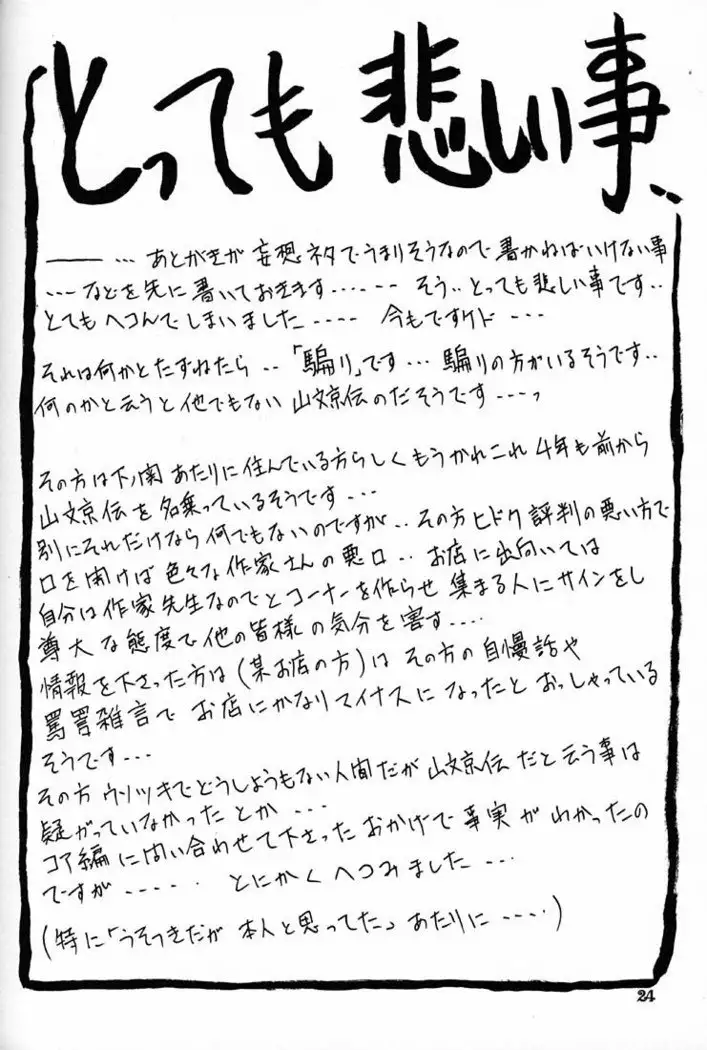 とっても悲しい事‥
――― … あとがきが 妄想ネタでうまりそうなので 書かねばいけない事
…などを先に書いておきます…… そう‥とっても悲しい事です‥
とてもヘコんでしまいました…… 今もですケド …
それは何かとたずねたら‥「騙り」です… 騙りの方がいるそうです‥
何のかと云うと他でもない 山文京伝のだそうです……っ
その方は下ノ関あたりに住んでいる方らしくもうかれこれ4年も前から
山文京伝を名乗っているそうです…
別にそれだけなら何でもないのですが‥その方ヒドク評判の悪い方で
口を開けば色々な作家さんの悪口‥お店に出向いては
自分は作家先生なのでとコーナーを作らせ集まる人にサインをし
尊大な態度で他の皆様の気分を害す……
情報を下さった方は(某お店の方)はその方の自慢話や
罵詈雑言でお店にかなりマイナスになったとおっしゃっている
そうです…
その方ウソツキでどうしようもない人間だが山文京伝だと云う事は
疑がっていなかったとか …
コア編に問い合わせて下さったおかげで事実がわかったの
ですが…… とにかくへつみました …
(特に「うそつきだが本人と思ってた」あたりに……)
24